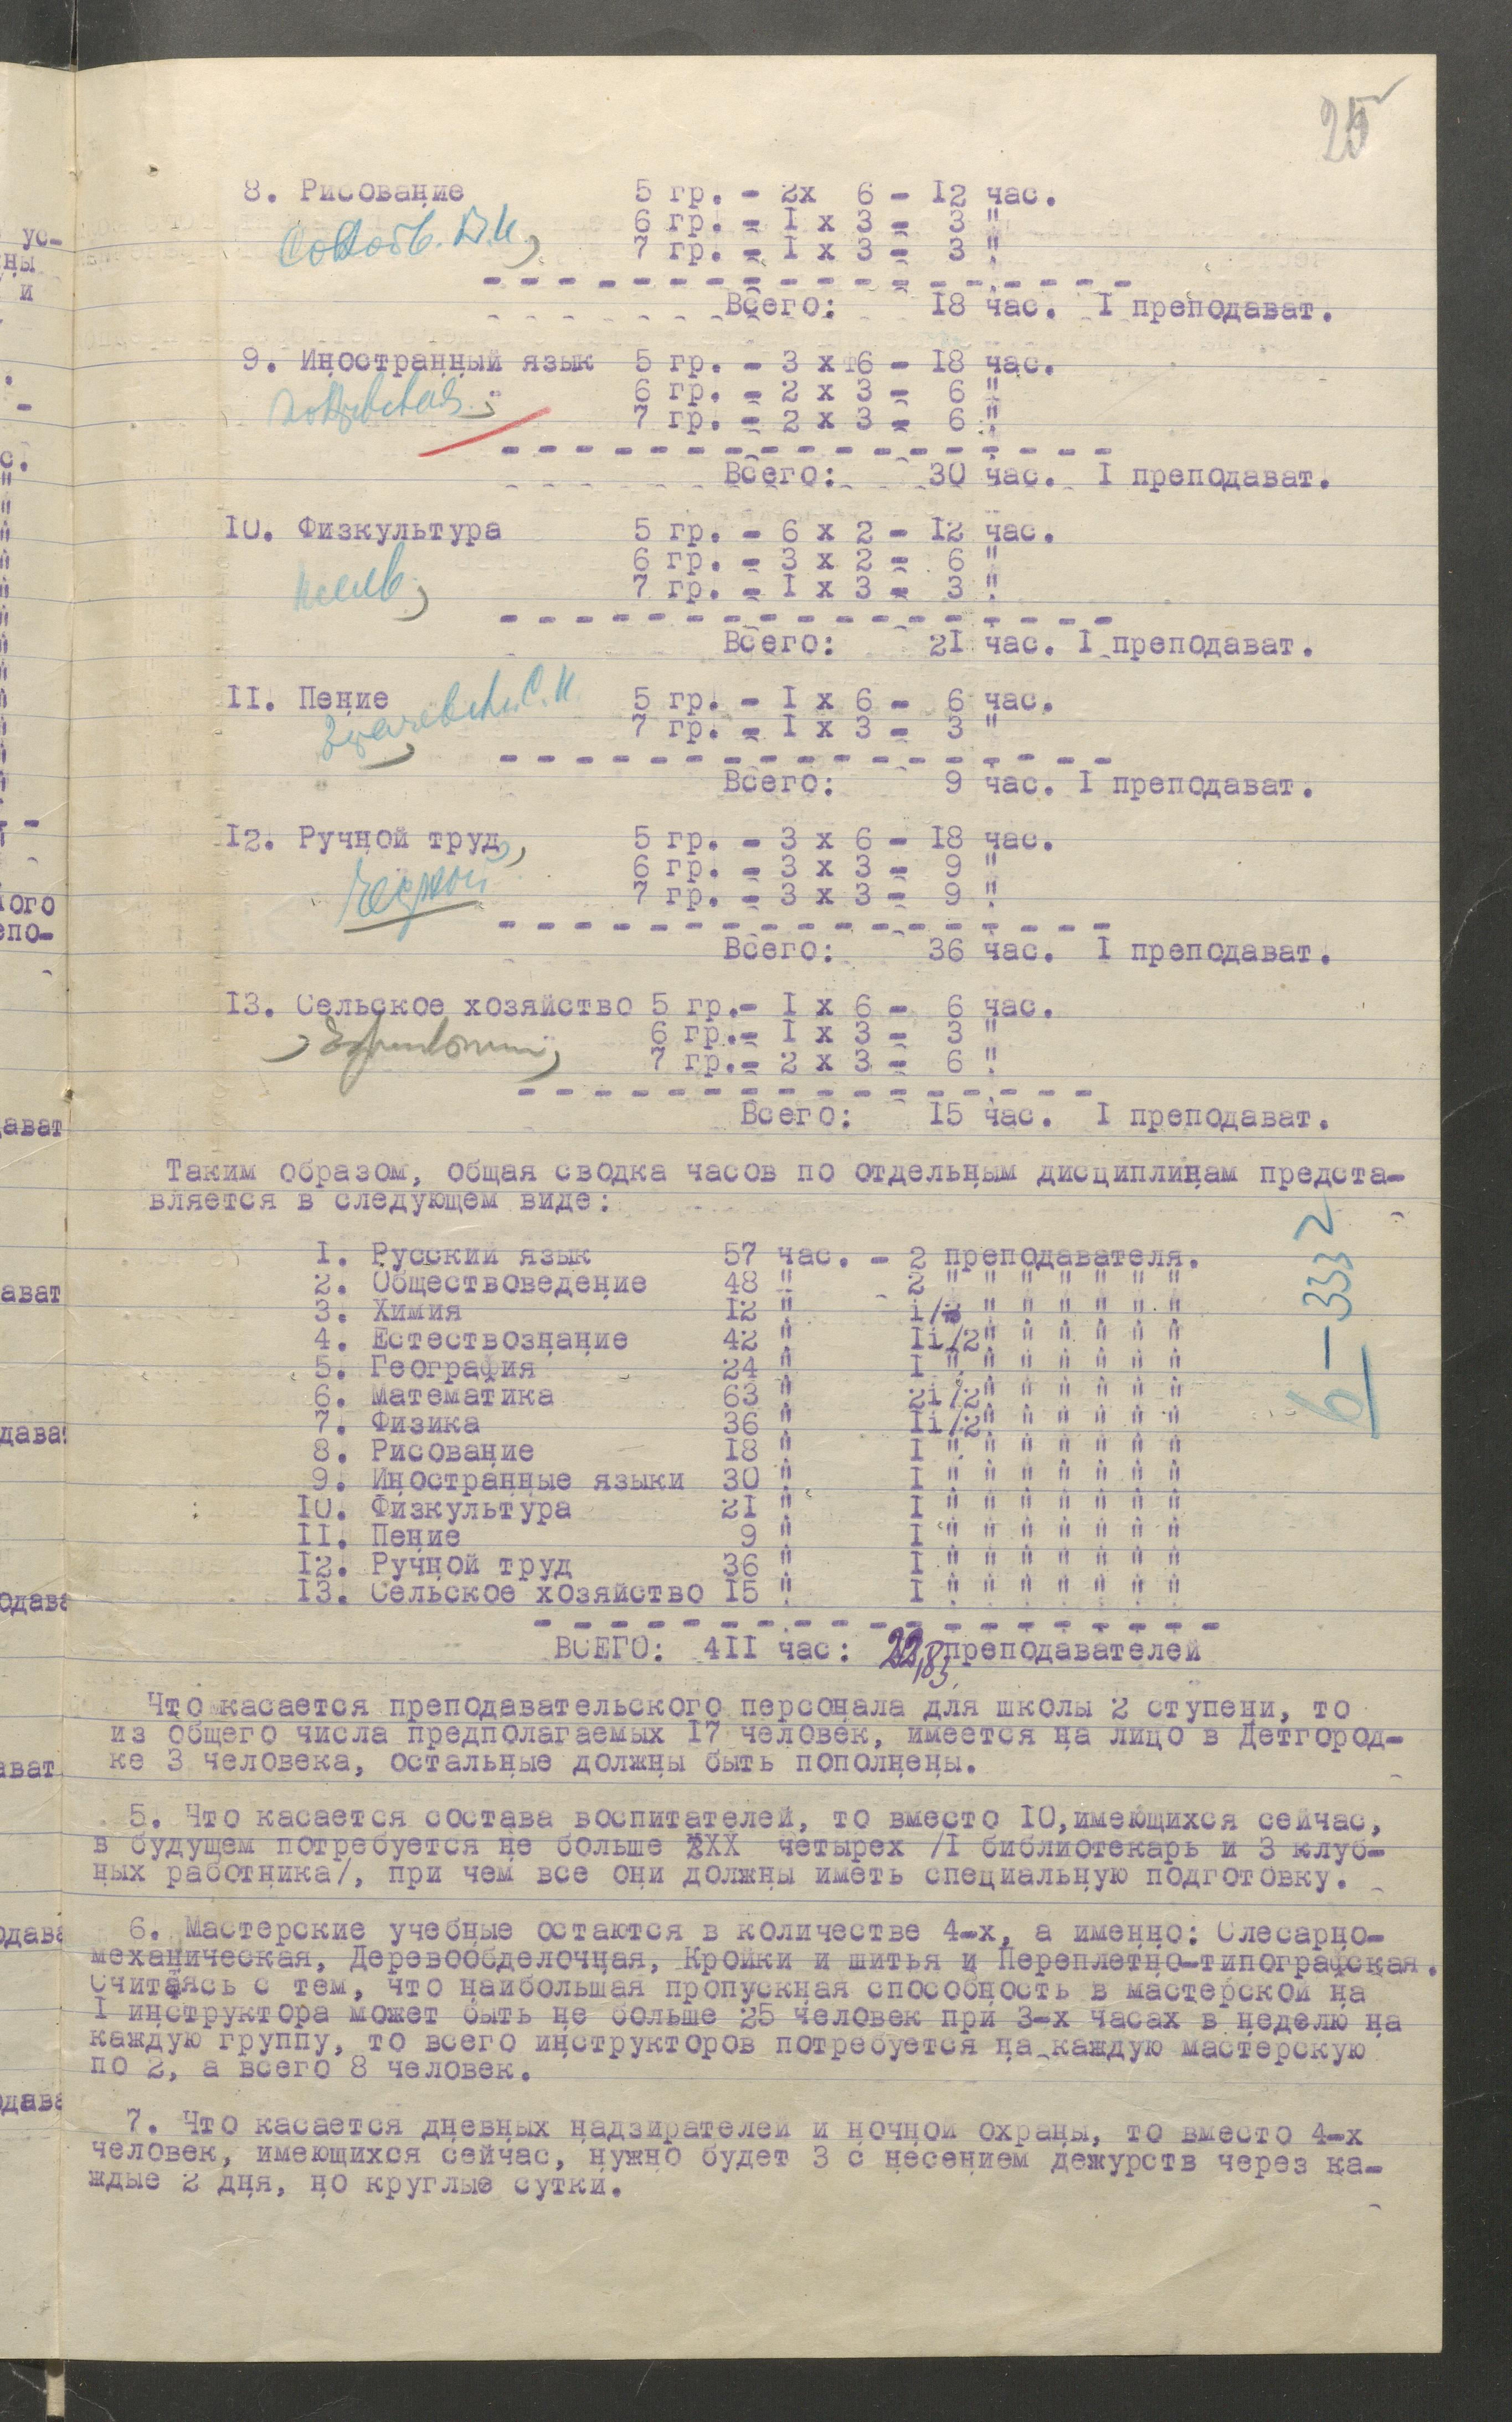 25
8. Рисование 5 гр. - 2х 6 - 12 час.
6 гр. - I х 3 - 3 "
7 гр. - I х 3 - 3 "
Всего: 18 час. I преподават.
9. Иностранный язык 5 гр. - 3 х 6 - 18 час.
6 гр. - 2 х 3 - 6 "
7 гр. - 2 х 3 - 6 "
Всего: 30 час. I преподават.
10. Физкультура 5 гр. - 6 х 2 - 12 час.
6 гр. - 3 х 2 - 6 "
7 гр. - I х 3 - 3 "
Всего: 21 час. I преподават.
11. Пение 5 гр. - I х 6 - 6 час.
7 гр. - I х 3 - 3 "
Всего: 9 час. I преподават.
12. Ручной труд 5 гр. - 3 х 6 - 18 час.
6 гр. - 3 х 3 - 9 "
7 гр. - 3 х 3 - 9 "
Всего: 36 час. I преподават.
13. Сельское хозяйство 5 гр.- I х 6 - 6 час.
6 гр.- I х 3 - 3 "
7 гр.- 2 х 3 - 6 "
Всего: 15 час. I преподават.
Таким образом, общая сводка часов по отдельным дисциплинам предста-
вляется в следующем виде:
1. Русский язык 57 час. - 2 преподавателя.
2. Обществоведение 48 " 2 " " " " " " "
3. Химия 12 " i/2 " " " " " "
4. Естествознание 42 " Ii/2" " " " " "
5. География 24 " I " " " " " " "
6. Математика 63 " 2i/2" " " " " "
7. Физика 36 " Ii/2" " " " " "
8. Рисование 18 " I " " " " " " "
9. Иностранные языки 30 " I " " " " " " "
10. Физкультура 21 " I " " " " " " "
11. Пение 9 " I " " " " " " "
12. Ручной труд 36 " I " " " " " " "
13. Сельское хозяйство 15 " I " " " " " " "
ВСЕГО: 411 час: 22,83 преподавателей
6 - 333 2
Что касается преподавательского персонала для школы 2 ступени, то
из общего числа предполагаемых 17 человек, имеется на лицо в Детгород-
ке 3 человека, остальные должны быть пополнены.
5. Что касается состава воспитателей, то вместо 10, имеющихся сейчас,
в будущем потребуется не больше ХХХ четырех /I библиотекарь и 3 клуб-
ных работника/, при чем все они должны иметь специальную подготовку.
6. Мастерские учебные остаются в количестве 4-х, а именно: Слесарно-
механическая, Деревообделочная, Кройки и шитья и Переплетно-типографская.
Считаясь с тем, что наибольшая пропускная способность в мастерской на
I инструктора может быть не больше 25 человек при 3-х часах в неделю на
каждую группу, то всего инструкторов потребуется на каждую мастерскую
по 2, а всего 8 человек.
7. Что касается дневных надзирателей и ночной охраны, то вместо 4-х
человек, имеющихся сейчас, нужно будет 3 с несением дежурств через ка-
ждые 2 дня, но круглые сутки.